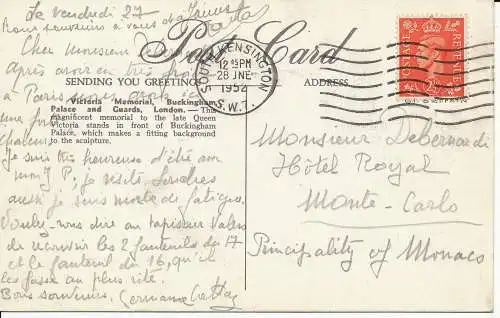 Le vendredi 27
Bons souvenirs à vous
Post Card
Cher Monsieur
SENDING YOU GREETINGS
ADDRESS.
SOUTH KENSINGTON
12 15PM
28 JNE
1952
S.W.7.
POSTAGE
REVENUE
après avoir eu très froid
à Paris
Victoria Memorial, Buckingham
Palace and Guards, London. The
magnificent memorial to the late Queen
Victoria stands in front of Buckingham
Palace, which makes a fitting background
to the sculpture.
Je suis très heureuse d'être
je visite Londres
aussi je suis morte de fatigue.
Voulez-vous dire au tapissier
de recouvrir les 2 fauteuils du 17
et le fauteuil du 16, qu'il
les fasse au plus vite.
Bons souvenirs.
Monsieur Debernardi
Hôtel Royal
Monte-Carlo
Principality of Monaco